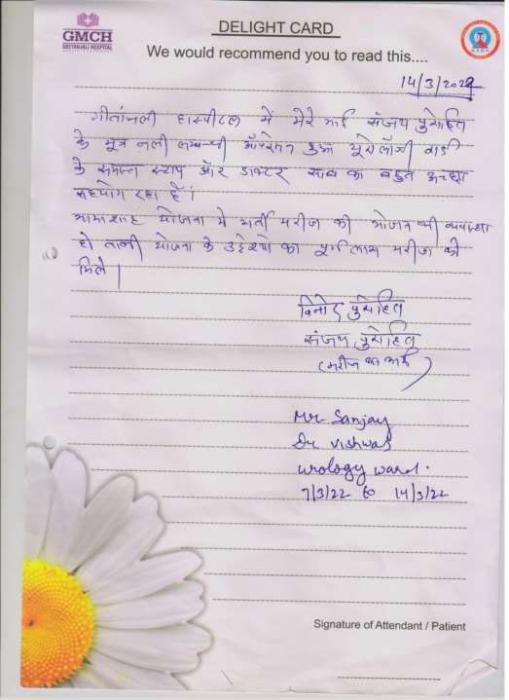 GMCH
GEETANJALI HOSPITAL
DELIGHT CARD
We would recommend you to read this....
14/3/2022
गीतांजली हास्पीटल में मेरे भाई संजय पुरोहित
के मूत्र नली सम्बन्धी ऑपरेशन हुआ यूरोलॉजी वार्ड
के समस्त स्टाफ और डाक्टर साब का बहुत अच्छा
सहयोग रहा है।
भामाशाह योजना में भर्ती मरीज की भोजन की व्यवस्था
हो ताकी योजना के उद्देश्यो का पूर्ण लाभ मरीज को
मिले।
विनोद पुरोहित
संजय पुरोहित
(मरीज का भाई)
Mr Sanjay
Dr Vishwas
Urology ward.
7/3/22 to 14/3/22
Signature of Attendant / Patient